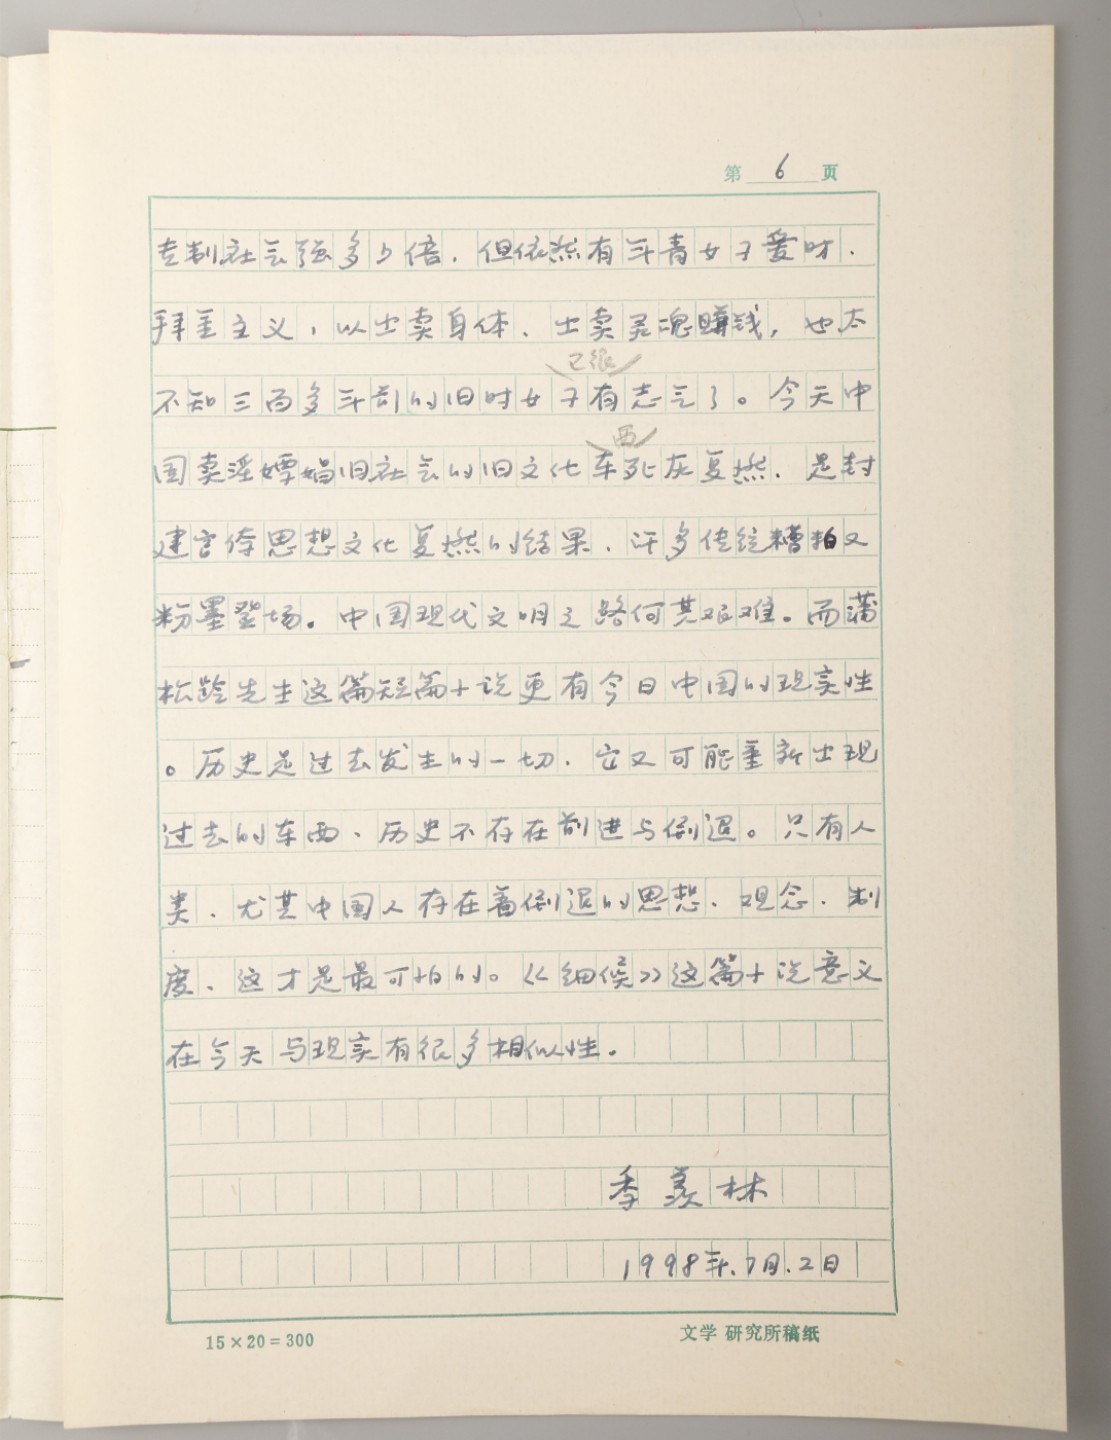 第 6 页
专制社会强多少倍.但依然有年青女子爱财.
拜金主义,以出卖身体、出卖灵魂赚钱,也太
已很
不知三百多年前的旧时女子有志气了。今天中
西
国卖淫嫖娼旧社会的旧文化东死灰复燃、是封
建官侍思想文化复燃的结果、许多传统糟粕又
粉墨登场。中国现代文明之路何其艰难。而蒲
松龄先生这篇短篇小说更有今日中国的现实性
。历史是过去发生的一切.它又可能重新出现
过去的东西、历史不存在前进与倒退。只有人
类、尤其中国人存在着倒退的思想、观念.制
度、这才是最可怕的。《细候》这篇小说意义
在今天与现实有很多相似性.
季羡林
1998年.7月.2日
15×20=300
文学 研究所稿纸